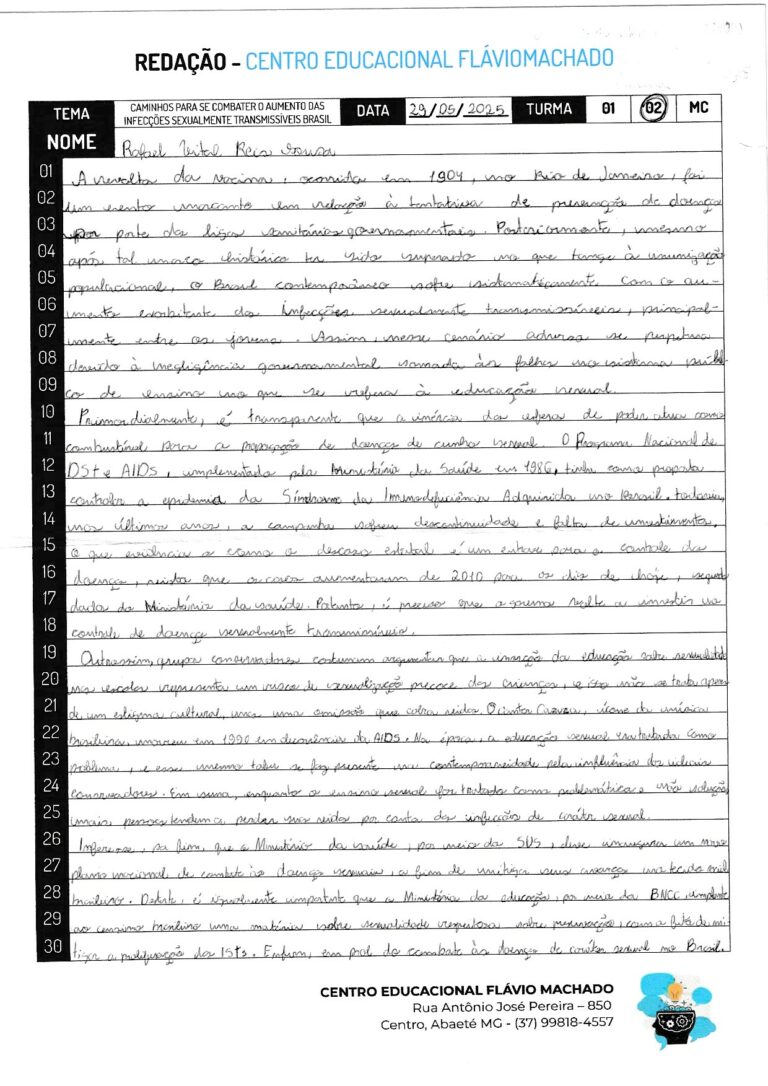 REDAÇÃO - CENTRO EDUCACIONAL FLÁVIOMACHADO
TEMA CAMINHOS PARA SE COMBATER O AUMENTO DAS INFECÇÕES SEXUALMENTE TRANSMISSÍVEIS BRASIL DATA 29/05/2025 TURMA 01 02 MC
NOME Rafael Vital Reis Sousa
01 A revolta da vacina, ocorrida em 1904, no Rio de Janeiro, foi
02 um evento marcante em relação à tentativa de prevenção de doença
03 por parte das ligas sanitárias governamentais. Posteriormente, mesmo
04 após tal marco histórico ter sido superado no que tange à imunização
05 populacional, o Brasil contemporâneo sofre sistematicamente com o au-
06 mento exorbitante das Infecções sexualmente transmissíveis, principal-
07 mente entre os jovens. Assim, nesse cenário adverso se perpetua
08 devido à negligência governamental somada às falhas no sistema públi-
09 co de ensino no que se refere à educação sexual.
10 Primordialmente, é transparente que a inércia das esferas de poder atua como
11 combustível para a propagação de doenças de cunho sexual. O Programa Nacional de
12 DST e AIDs, implementado pelo Ministério da Saúde em 1986, tinha como proposta
13 controlar a epidemia da Síndrome da Imunodeficiência Adquirida no Brasil.
14 nos últimos anos, a campanha sofreu descontinuidade e falta de investimentos.
15 O que evidencia o como o descaso estatal é um entrave para o controle da
16 doença, visto que os casos aumentaram de 2010 para os dias de hoje, segundo
17 dados do Ministério da saúde. Portanto, é preciso que o governo volte a investir no
18 controle de doenças sexualmente transmissíveis.
19 Outrossim, grupos conservadores costumam argumentar que a inserção da educação sobre sexualidade
20 nas escolas representa um risco de sexualização precoce das crianças, e isso não se trata apenas
21 de um estigma cultural, mas uma omissão que cobra vidas. O cantor Cazuza, ícone da música
22 brasileira, morreu em 1990 em decorrência da AIDS. Na época, a educação sexual era tratada como
23 problema, e esse mesmo tabu se faz presente na contemporaneidade pela influência dos ideais
24 conservadores. Em suma, enquanto o ensino sexual for tratado como problemática e não solução
25 mais pessoas tendem a perder suas vidas por conta das infecções de caráter sexual.
26 Infere-se, por fim, que o Ministério da saúde, por meio do SUS, deve inaugurar um novo
27 plano nacional de combate às doenças sexuais, a fim de mitigar seus avanços no tecido civil
28 brasileiro. , é igualmente importante que o Ministério da educação, por meio da BNCC, implante
29 ao ensino brasileiro uma matéria sobre sexualidade sobre prevenção, com a de mi-
30 tigar a proliferação das ISTs. Enfim, em prol do combate às doenças de caráter sexual no Brasil.
CENTRO EDUCACIONAL FLÁVIO MACHADO
Rua Antônio José Pereira – 850
Centro, Abaeté MG - (37) 99818-4557